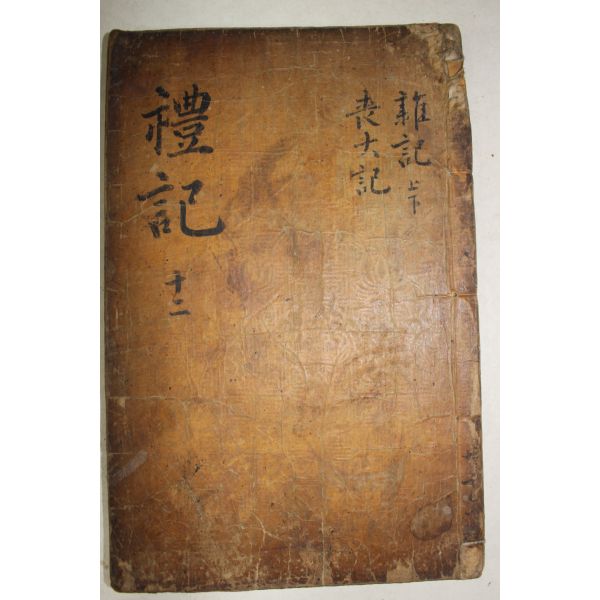 雜記上下
喪大記
禮記
十二